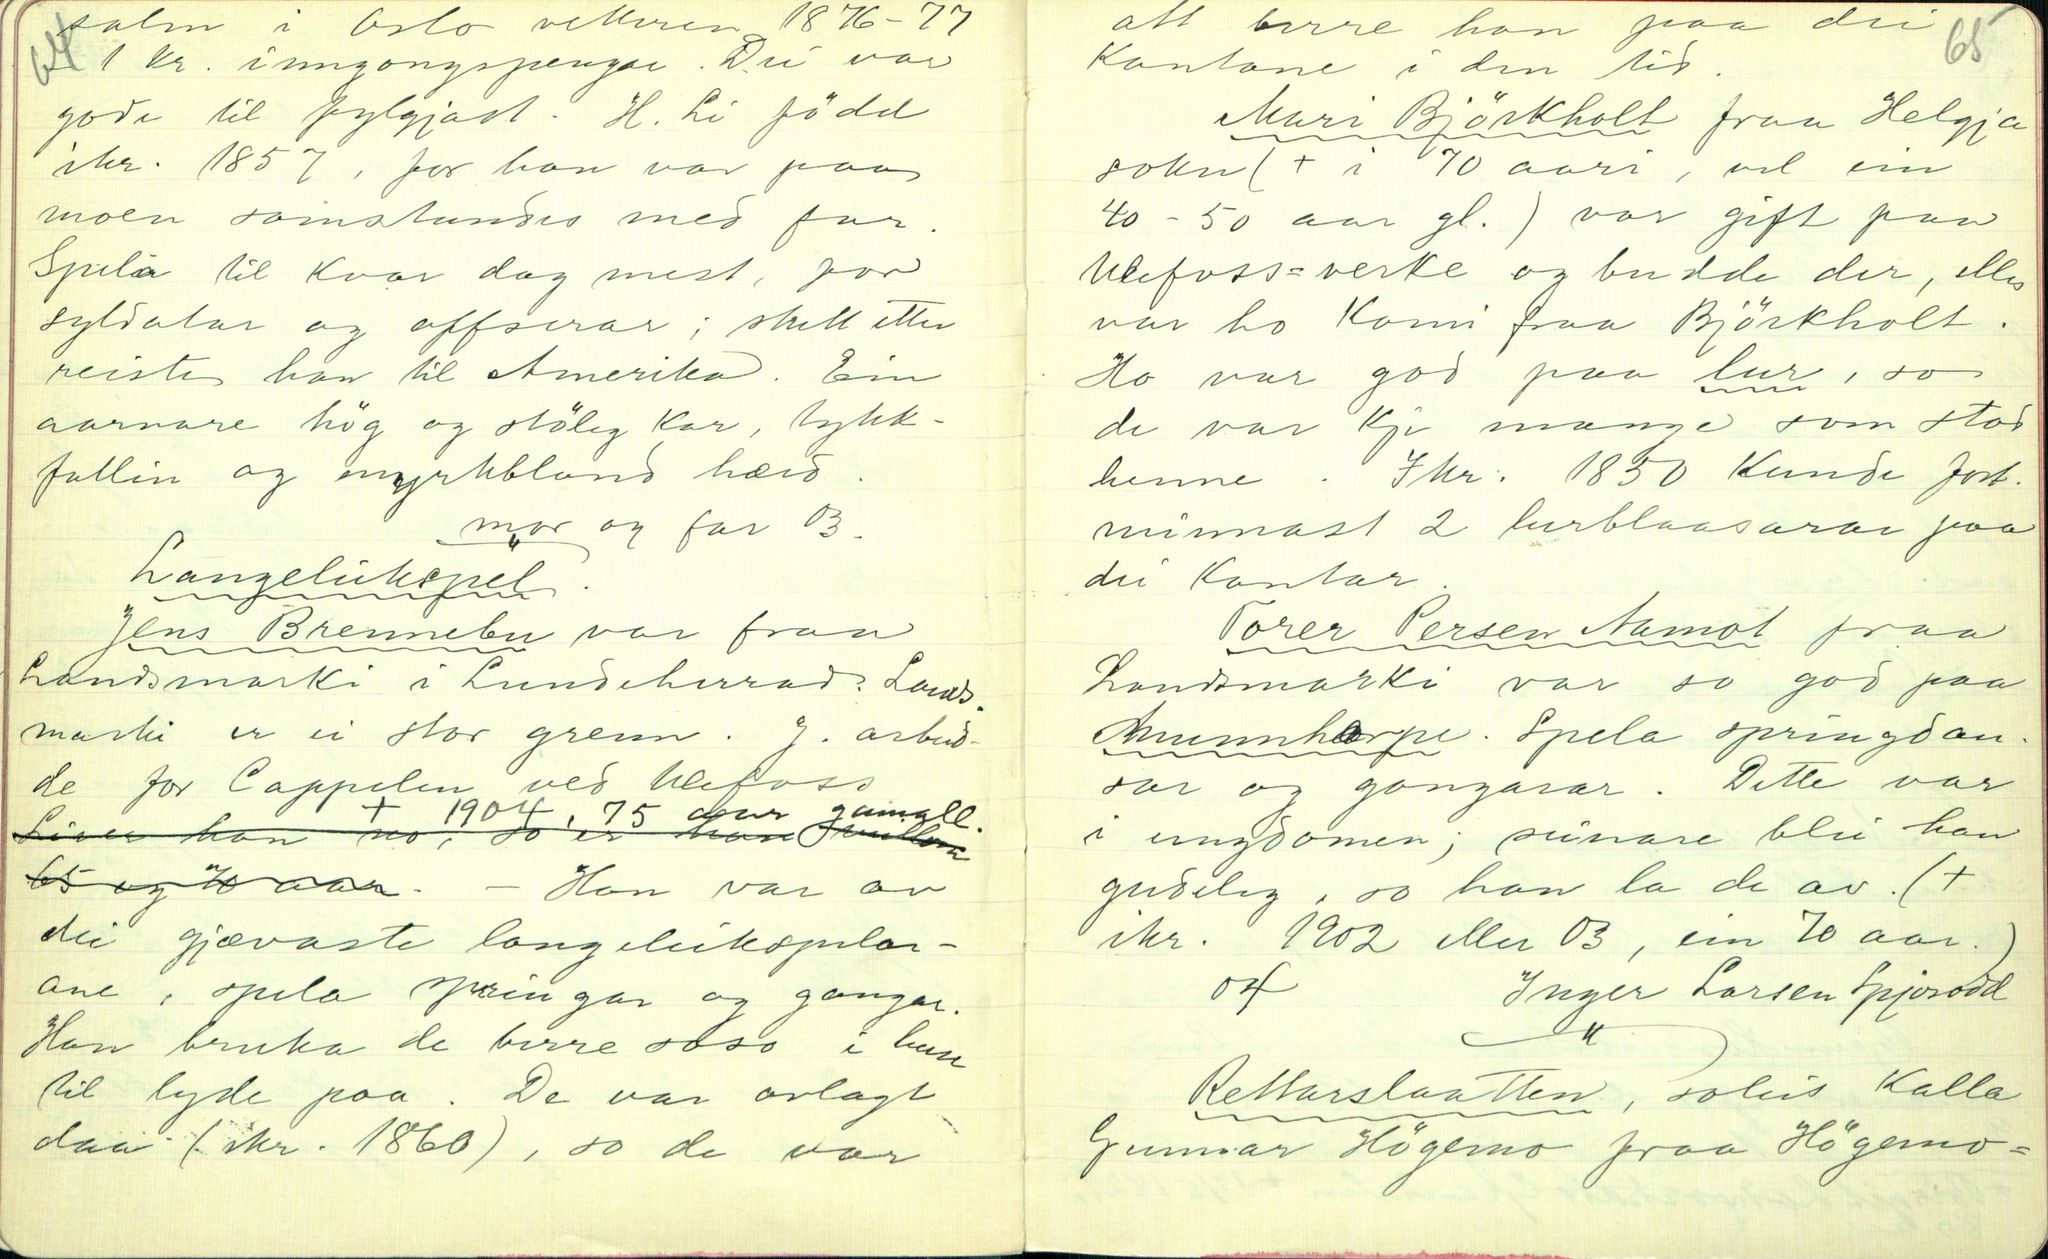 64
salen i Oslo vetteren 1876-77
1 kr. inngongspengar. Dei var
gode til fylgjast. H. Li född
ikr. 1857, for han var paa
moen samstundes med far.
Spela til kvar dag mest, for
syldatar og offserar; stutt etter
reiste han til Amerika. Ein
aarvare hög og stöleg kar, tykk-
fallin og myrkbland hæid.
mor og far 03.
Langeleikspel.
Jens Brennebu var fraa
Landsmarki i Lundeherrad. Lands-
marki er ei stor grenn. J. arbeid-
de for Cappelen ved Ulefoss
+ 1904, 75 aar gamall.
Liver han no, so er han millom
65 og 70 aar. - Han var av
dei gjævaste langeleikspelar-
ane, spela springar og gangar.
Han bruka de berre soso i huse
til lyde paa. De var avlagt
daa (ikr. 1860), so de var
65
att berre han paa dei
kantane i den tid.
Mari Björkholt fraa Helgja
sokn (+ i 70 aari, vel ein
40-50 aar gl.) var gift paa
Ulefoss=verke og budde der, elles
var ho komi fraa Björkholt.
Ho var god paa lur, so
de var kje mange som stod
henne. Ikr. 1850 kunde fort.
minnast 2 lurblaasarar paa
dei kantar.
Torer Persen Namot fraa
Landsmarki var so god paa
Munnharpe. Spela springdan-
sar og gangarar. Dette var
i ungdomen; seinare blei han
gudeleg, so han la de av. (+
ikr. 1902 eller 03, ein 70 aar.)
04 Inger Larsen Spjosodd
Rettarslaatten, soleis kalla
Gunnar Högemo fraa Högemo=